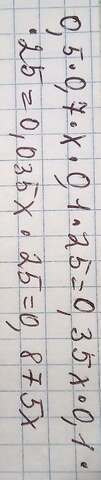 0,5·0,7·x·0,1·25=0,35x·0,1·
·25=0,035x·25=0,875x